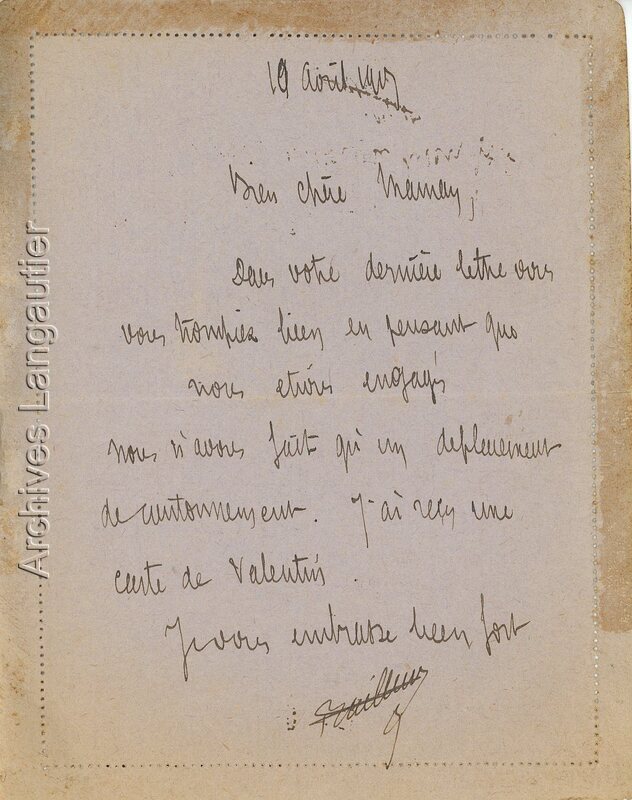 19 Avril 1915
Bien chère Maman,
Dans votre dernière lettre vous
vous trompiez bien en pensant que
nous etions engagés
nous n'avons fait qu'un deplacement
de cantonnement. J'ai reçu une
carte de Valentin.
Je vous embrasse bien fort
Archives Langautier